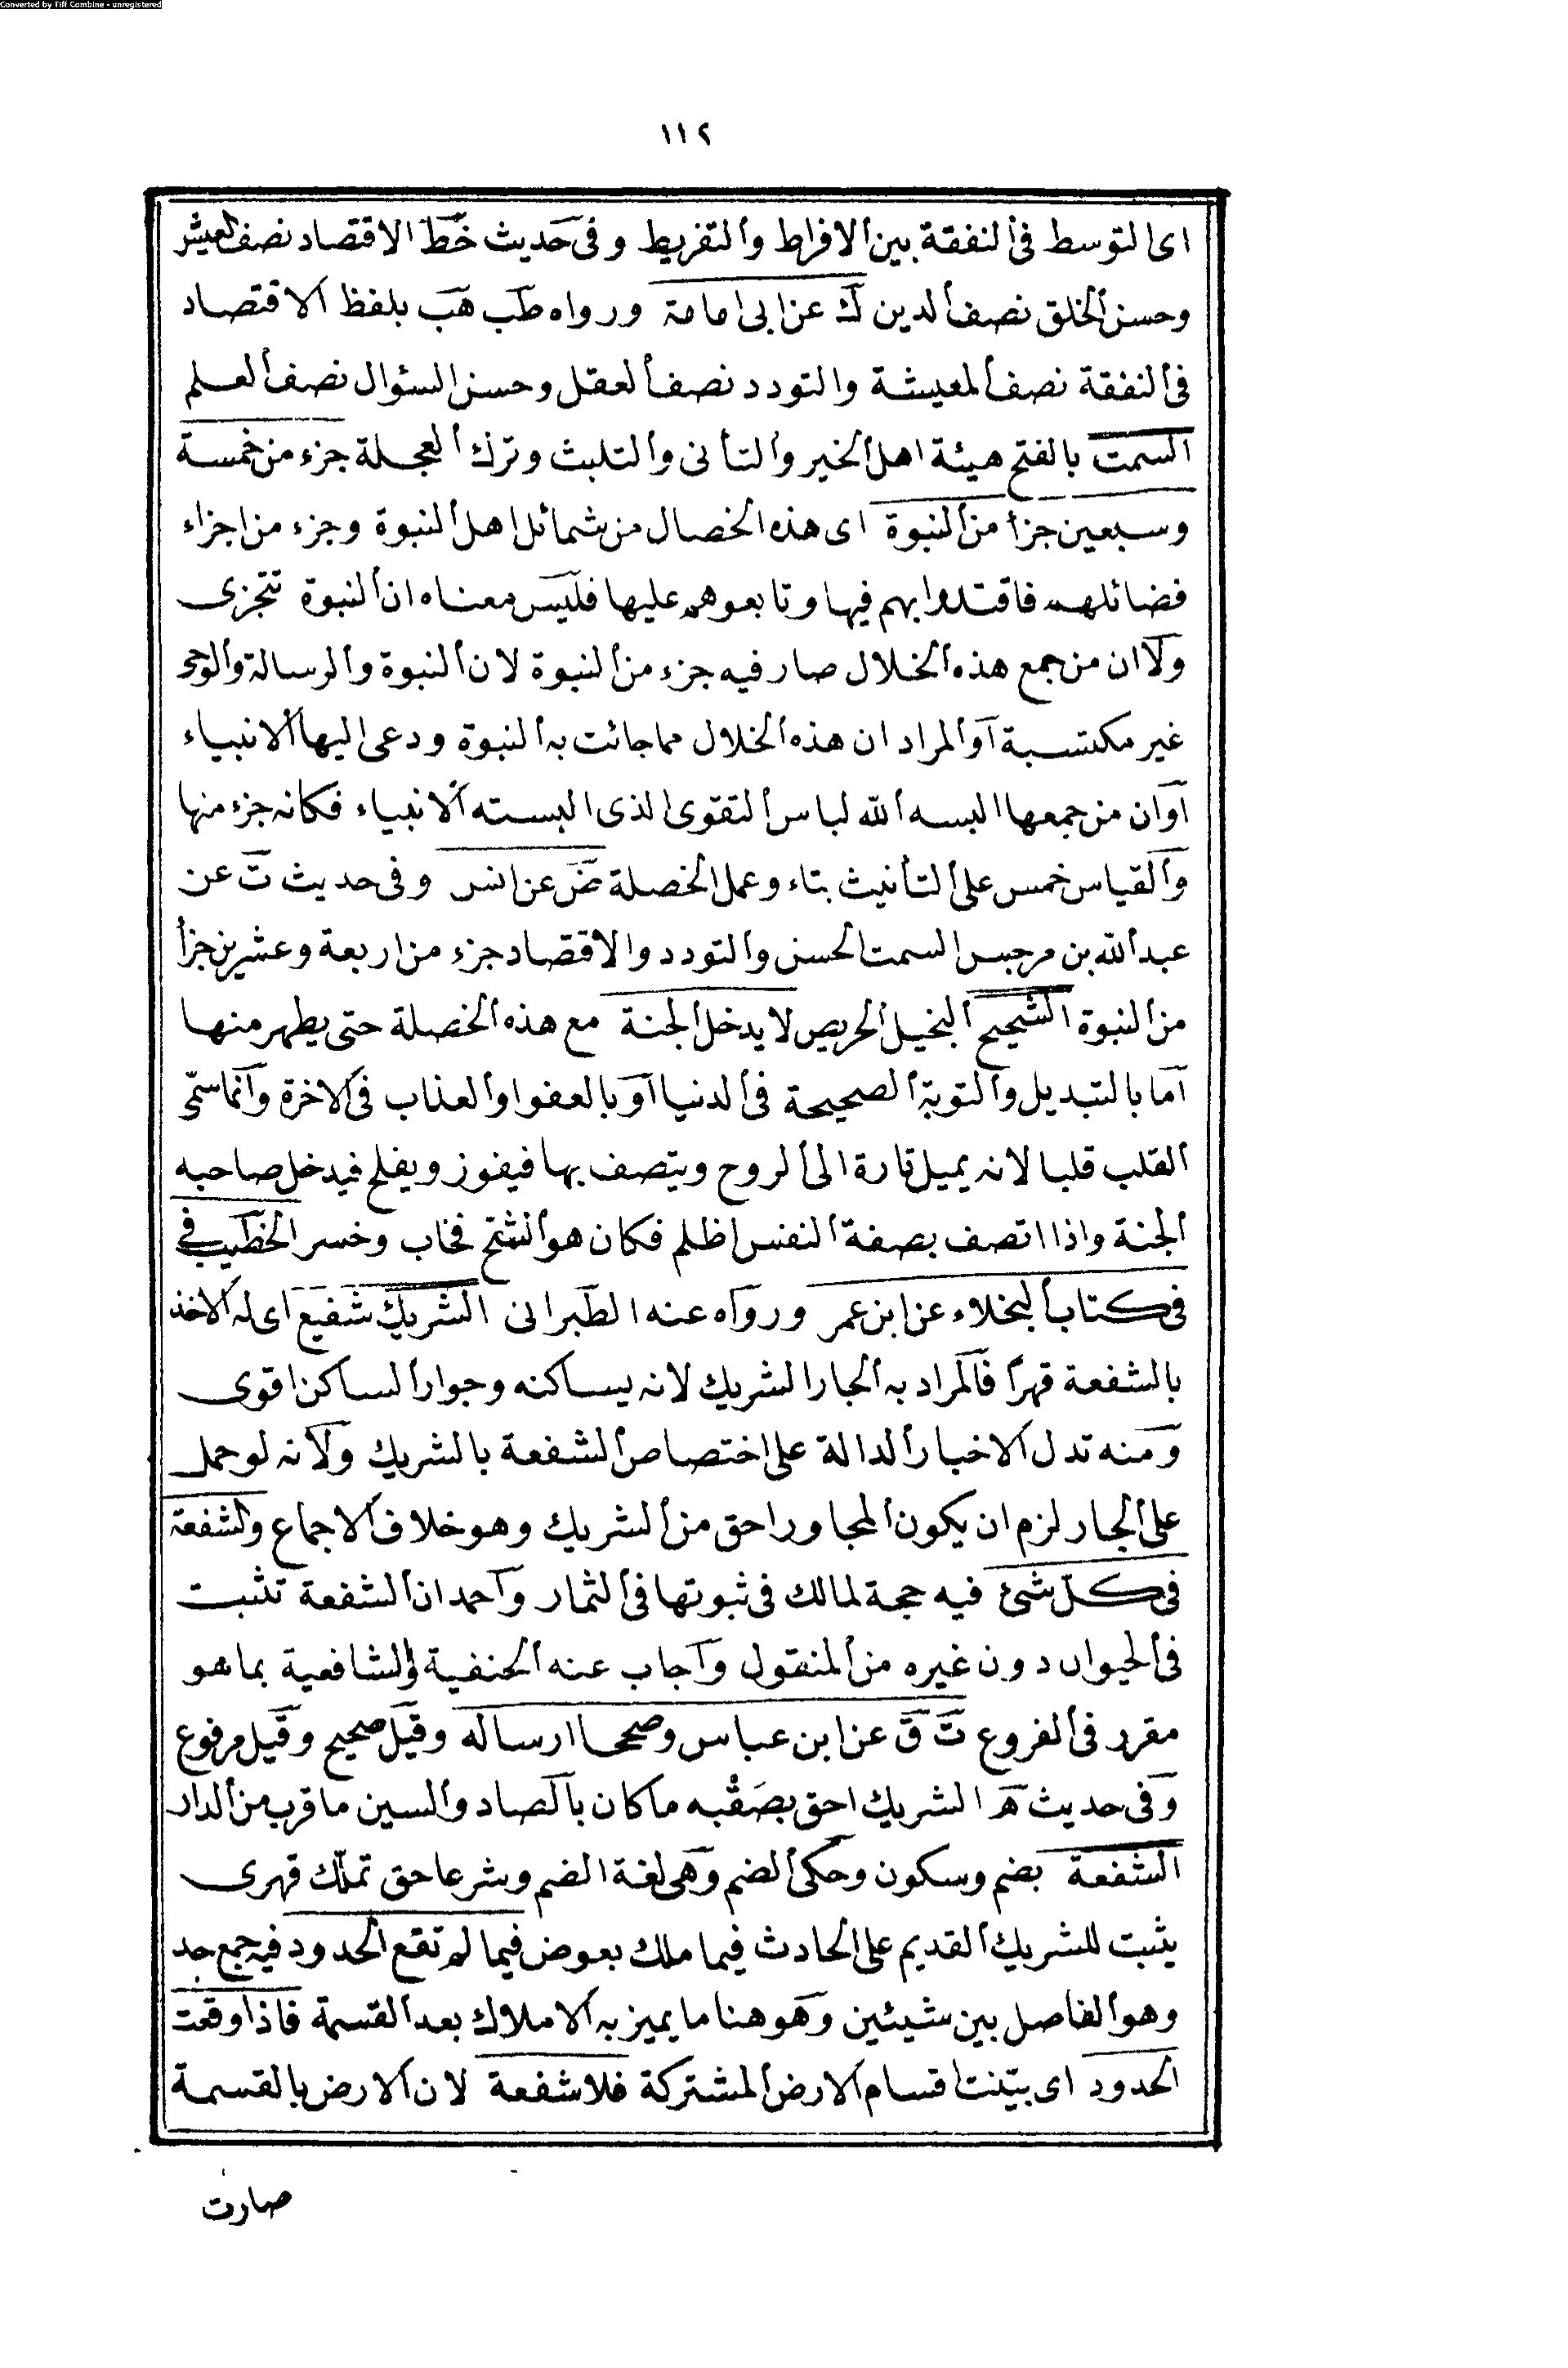 Converted by Tiff Combine - unregistered
١١٢
اى التوسط فى النفقة بين الافراط والتفريط وفى حديث خط الاقتصاد نصف العيش
وحسن الخلق نصف الدين ك عن ابى امامة ورواه طب هب بلفظ الاقتصاد
فى النفقة نصف المعيشة والتودد نصف العقل وحسن السؤال نصف العلم
السمت بالفتح هيئة اهل الخير والتأنى والتلبث وترك العجلة جزء من خمسة
وسبعين جزأ من النبوة اى هذه الخصال من شمائل اهل النبوة وجزء من اجزاء
فضائلهم فاقتدوا بهم فيها وتابعوهم عليها فليس معناه ان النبوة تتجزى
ولا ان من جمع هذه الخلال صار فيه جزء من النبوة لان النبوة والرسالة والوحى
غير مكتسبة او المراد ان هذه الخلال مما جائت به النبوة ودعى اليها الانبياء
او ان من جمعها البسه الله لباس التقوى الذى البسته الانبياء فكانه جزء منها
والقياس خمس على التأنيث بتاء وعمل الخصلة ض عن انس وفى حديث ت عن
عبد الله بن مرجس السمت الحسن والتودد والاقتصاد جزء من اربعة وعشرين جزأ
من النبوة الشحيح البخيل الحريص لا يدخل الجنة مع هذه الخصلة حتى يطهر منها
اما بالتبديل والتوبة الصحيحة فى الدنيا او بالعفو او العذاب فى الاخرة وانما سمّى
القلب قلبا لانه يميل تارة الى الروح ويتصف بها فيفوز ويفلح فيدخل صاحبه
الجنة واذا اتصف بصفة النفس اظلم فكان هو الشحّ فخاب وخسر الخطيب فى
فى كتاب البخلاء عن ابن عمر ورواه عنه الطبرانى الشريك شفيع اى له الاخذ
بالشفعة قهراً فالمراد به الجار الشريك لانه يساكنه وجوار الساكن اقوى
ومنه تدل الاخبار الدالة على اختصاص الشفعة بالشريك ولانه لو حمل
على الجار لزم ان يكون المجاور احق من الشريك وهو خلاف الاجماع والشفعة
فى كلّ شئ فيه حجة لمالك فى ثبوتها فى الثمار واحمد ان الشفعة تثبت
فى الحيوان دون غيره من المنقول واجاب عنه الحنفية والشافعية بما هو
مقرر فى الفروع ت ق عن ابن عباس وصححا ارساله وقيل صحيح وقيل مرفوع
وفى حديث ه الشريك احق بصَقْبه ما كان بالصاد والسين ما قرب من الدار
الشفعة بضم وسكون وحكى الضم وهى لغة الضم وشرعا حق تملّك قهرى
يثبت للشريك القديم على الحادث فيما ملك بعوض فيما لم تقع الحدود فيه جمع حد
وهو الفاصل بين شيئين وهو هنا ما يميز به الاملاك بعد القسمة فاذا وقعت
الحدود اى بيّنت اقسام الارض المشتركة فلا شفعة لان الارض بالقسمة
صارت